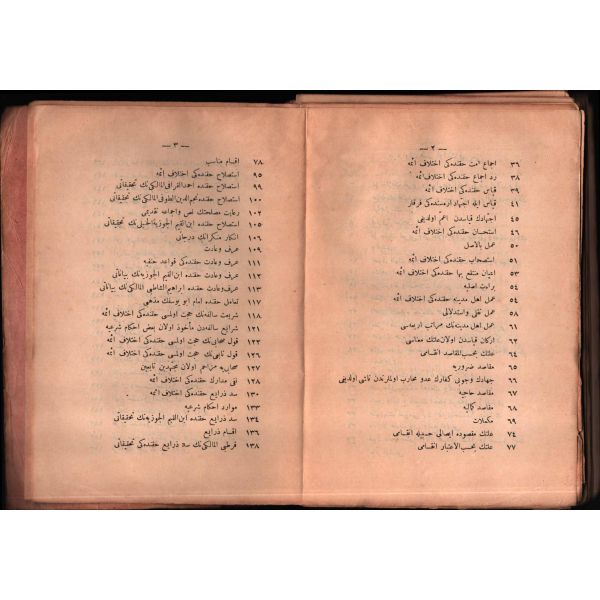 — ٢ —
٣٦ اجماع امت حقنده‌كی اختلاف ائمه
٣٨ رد اجماع حقنده‌كی اختلاف ائمه
٣٩ قیاس حقنده‌كی اختلاف ائمه
٤١ قیاس ایله اجتهاد آرەسنده‌كی فرقلر
٤٥ اجتهادك قیاسدن اعم اولدیغی
٤٦ استحسان حقنده‌كی اختلاف ائمه
٥٠ عمل بالاصل
٥١ استصحاب حقنده‌كی اختلاف ائمه
٥٣ اعیان منتفع بها حقنده‌كی اختلاف ائمه
٥٤ برائت اصلیه
٥٤ عمل اهل مدینه حقنده‌كی اختلاف ائمه
٥٨ عمل نقلی واستدلالی
٦١ عمل اهل مدینه‌نك مراتب اربعه‌سی
٦٢ اركان قیاسدن اولان علتك معناسی
٦٤ علتك بحسب المقاصد اقسامی
٦٥ مقاصد ضروریه
٦٦ جهادك وجوبی كفارك عدو محارب اولملرندن ناشی اولدیغی
٦٧ مقاصد حاجیه
٦٨ مقاصد كمالیه
٦٩ مكملات
٧٤ علتك مقصوده ایصالی حسبیله اقسامی
٧٧ علتك بحسب الاعتبار اقسامی
— ٣ —
٧٨ اقسام مناسب
٩٥ استصلاح حقنده‌كی اختلاف ائمه
٩٩ استصلاح حقنده احمد القرافی المالكی‌نك تحقیقاتی
١٠٠ استصلاح حقنده نجم الدین الطوفی المالكی‌نك تحقیقاتی
١٠٢ رعایت مصلحتك نص واجماعه تقدیمی
١٠٥ استصلاح حقنده ابن القیم الجوزیة الحنبلی‌نك تحقیقاتی
١٠٦ انكار منكرك درجاتی
١٠٩ عرف وعادت
١١١ عرف وعادت حقنده‌كی قواعد حنفیه
١١٢ عرف وعادت حقنده ابن القیم الجوزیه‌نك بیاناتی
١١٣ عرف وعادت حقنده ابراهیم الشاطبی المالكی‌نك بیاناتی
١١٧ تعامل حقنده امام ابو یوسفك مذهبی
١١٨ شریعت سالفه‌نك حجت اولمسی حقنده‌كی اختلاف ائمه
١٢١ شرایع سالفه‌دن مأخوذ اولان بعض احكام شرعیه
١٢٣ قول صحابی‌نك حجت اولمسی حقنده‌كی اختلاف ائمه
١٢٦ قول تابعی‌نك حجت اولمسی حقنده‌كی اختلاف ائمه
١٢٧ صحابه‌یه مزاحم اولان مجتهدین تابعین
١٢٨ نفی مدارك حقنده‌كی اختلاف ائمه
١٣٠ سد ذرایع حقنده‌كی اختلاف ائمه
١٣٣ موارد احكام شرعیه
١٣٤ سد ذرایع حقنده ابن القیم الجوزیه‌نك تحقیقاتی
١٣٦ اقسام ذرایع
١٣٨ قرطبی المالكی‌نك سد ذرایع حقنده‌كی تحقیقاتی